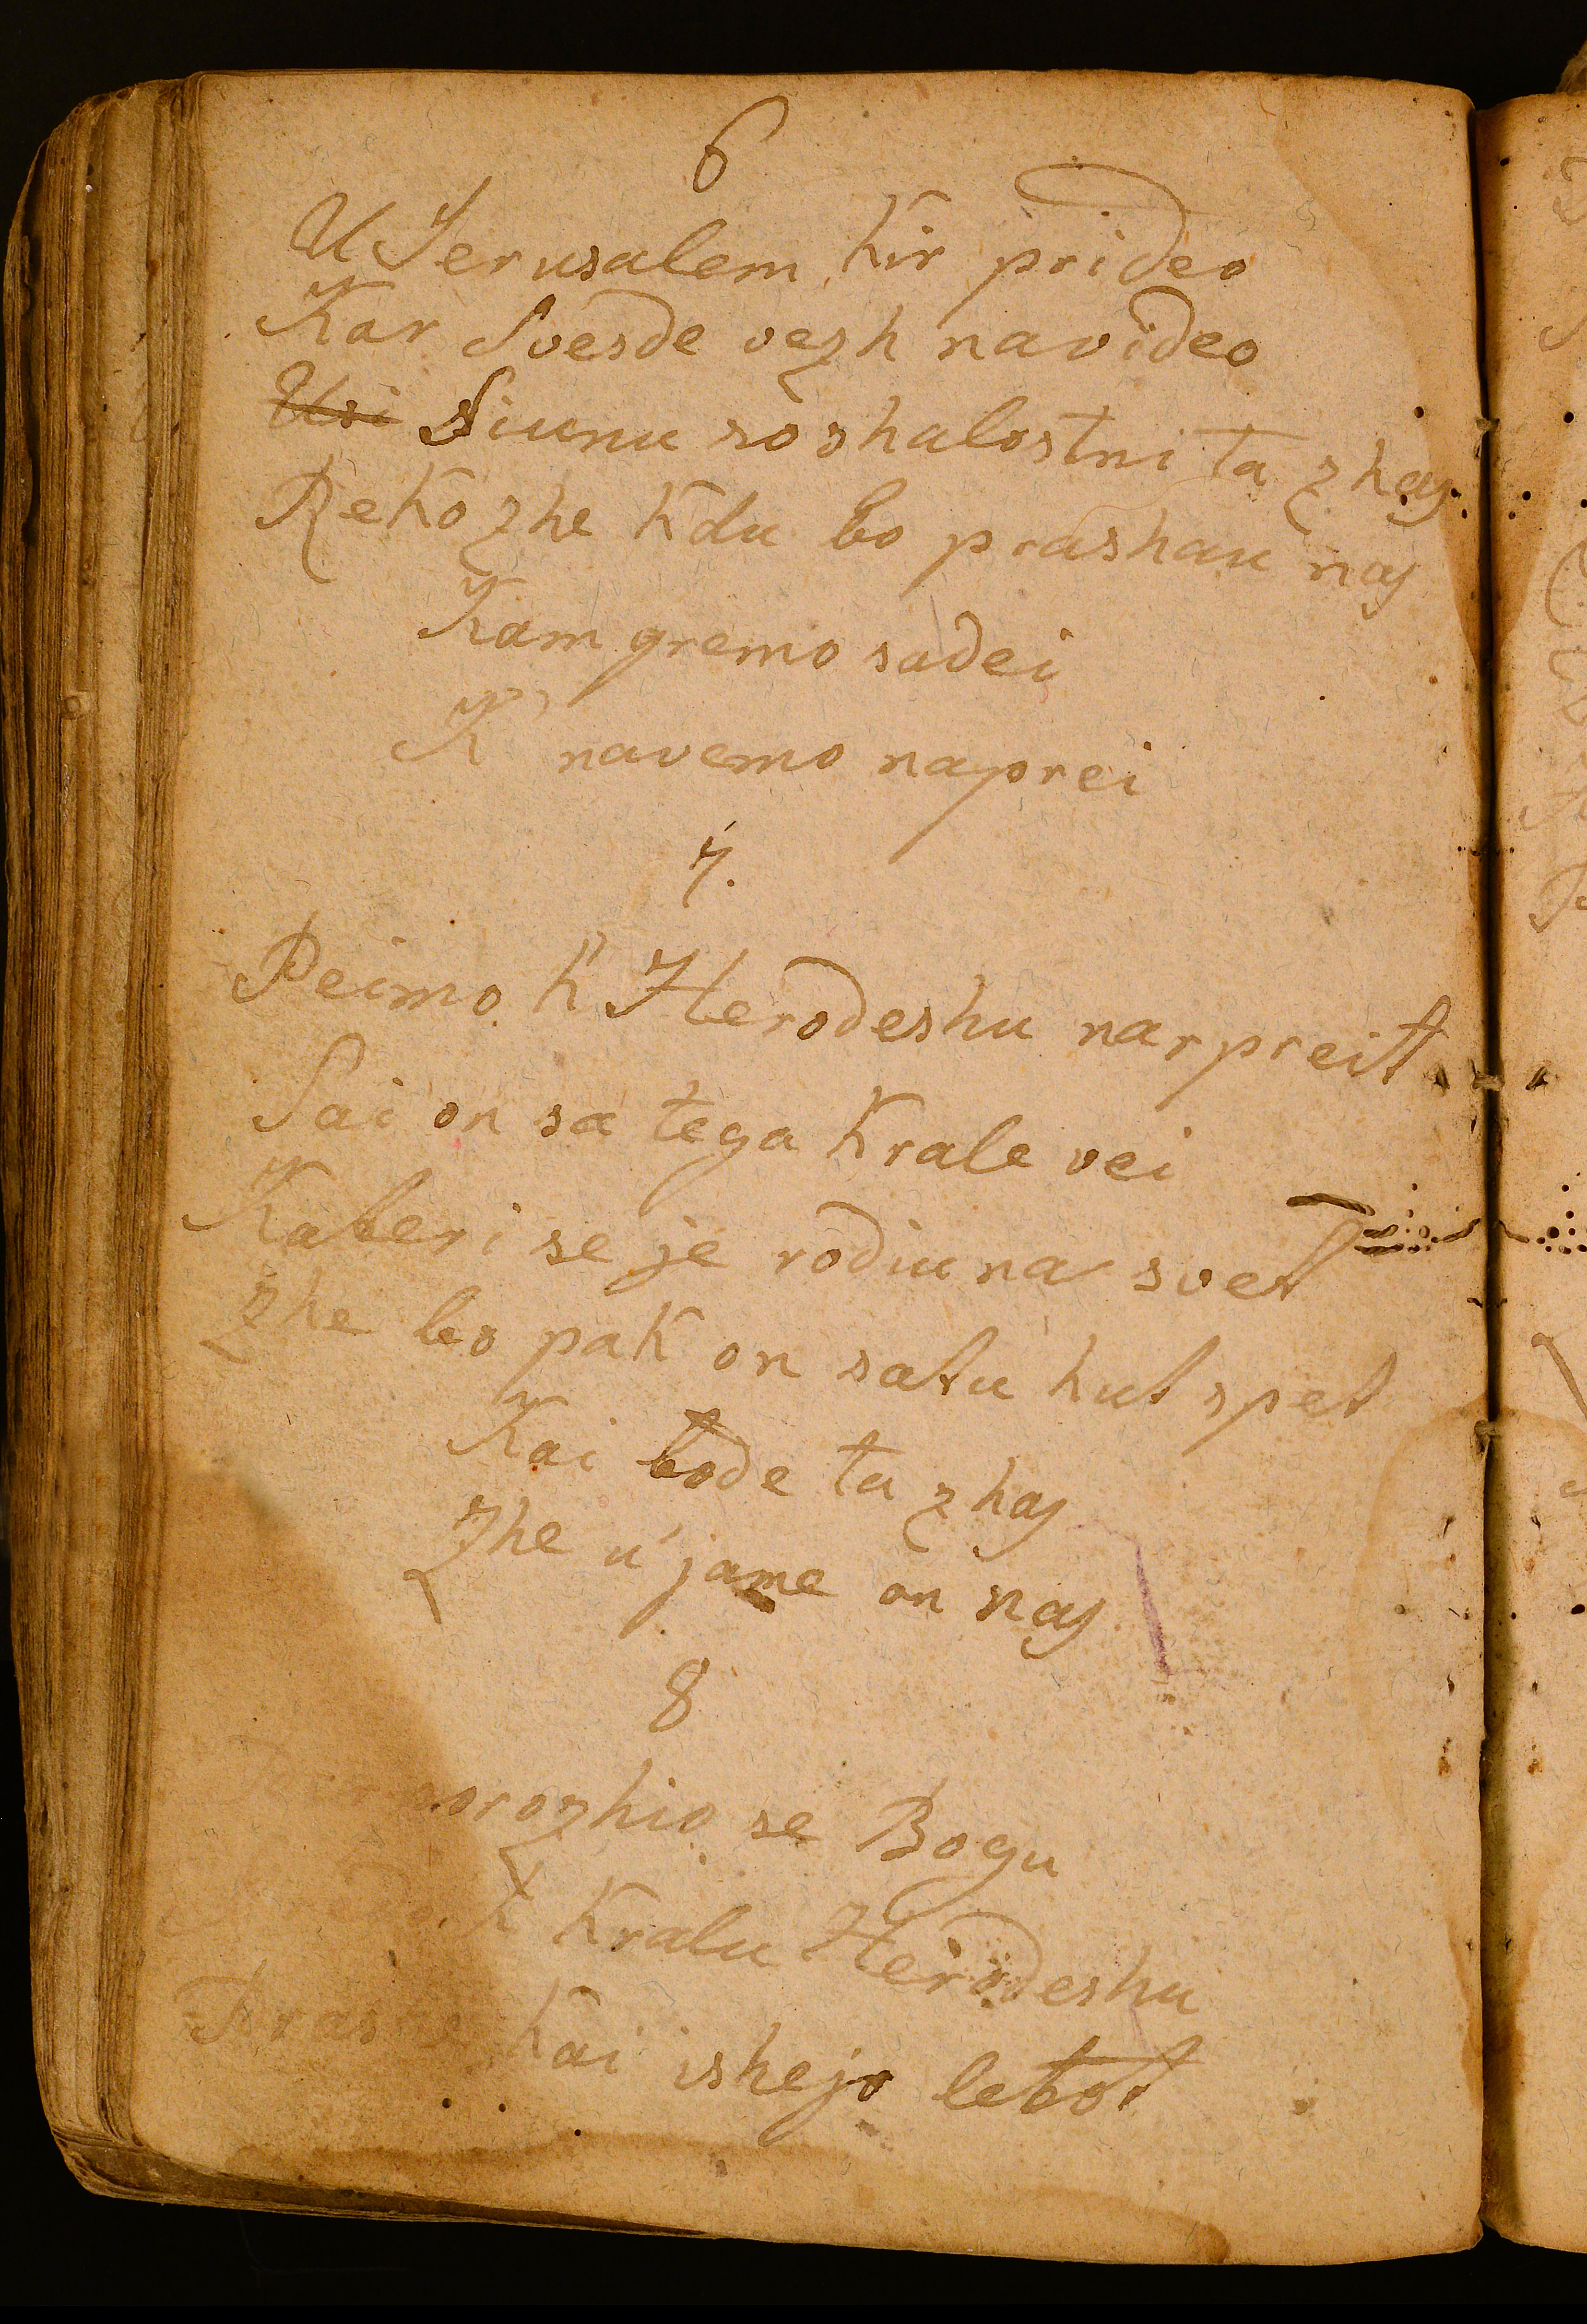 6
U Jerusalem kir prideo
Kar Svesde vezh navideo
Usi Siunu so shalostni ta zhaj
Reko zhe kdu bo prashau naj
Kam gremo sadei
K' navemo naprei
7.
Peimo k' Herodeshu narpreit
Sai on sa tega Krale vei
Kateri se je rodiu na svet
Zhe bo pak on satu hut spet
Kai bode ta zhaj
Zhe u' jame on naj
8
se Bogu
K Kralu Herodeshu
kai ishejo letot